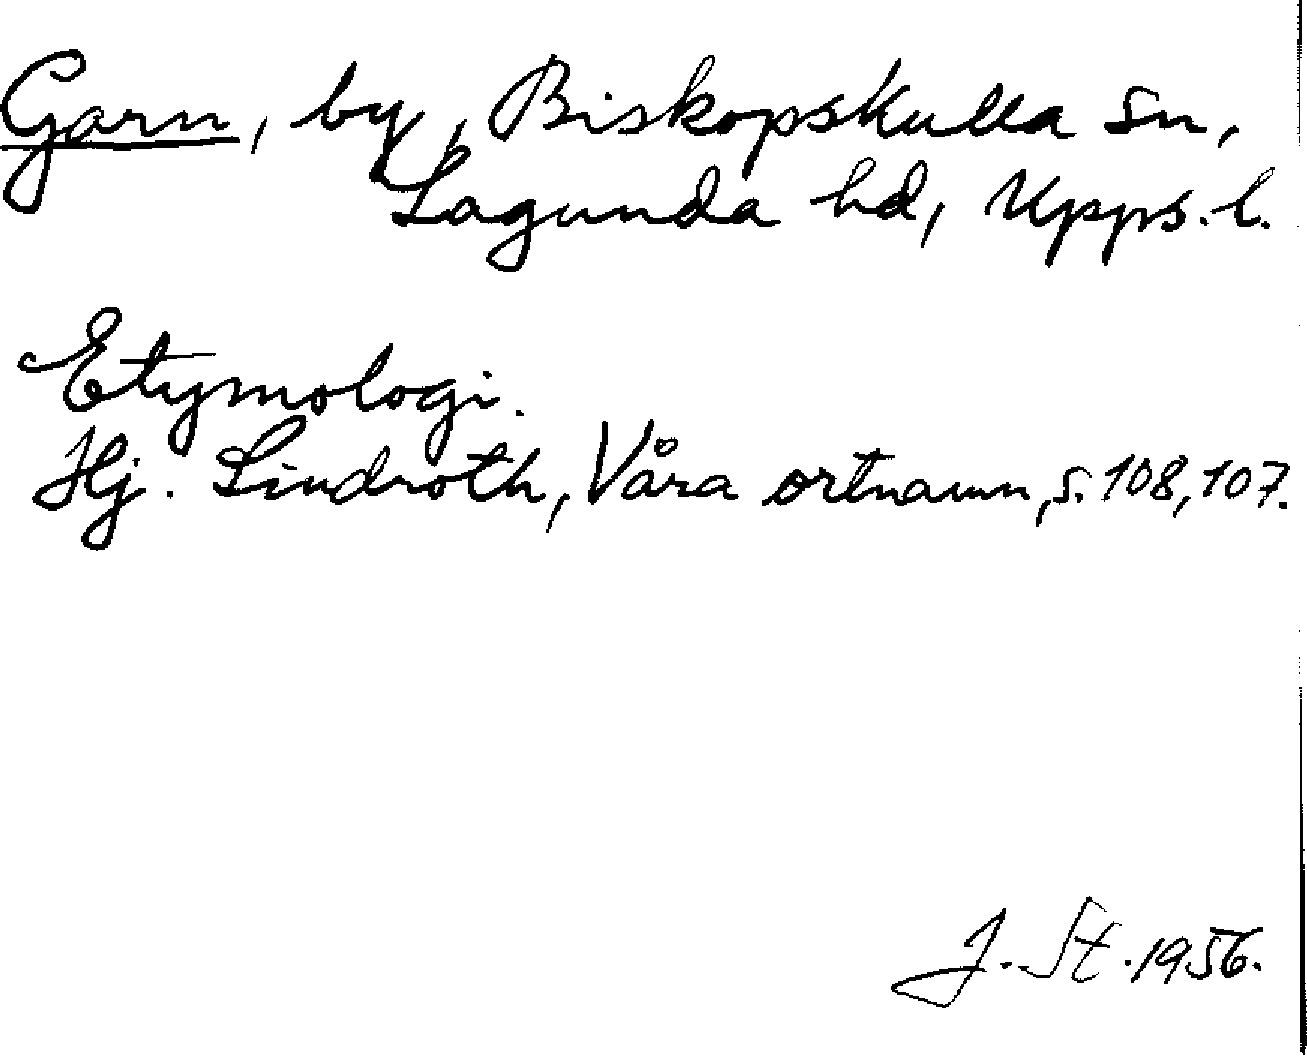 Garn, by, Biskopskulla sn,
Lagunda hd, Upps. l.
Etymologi.
Hj. Lindroth, Våra ortnamn, s. 108, 107.
J. St. 1956.